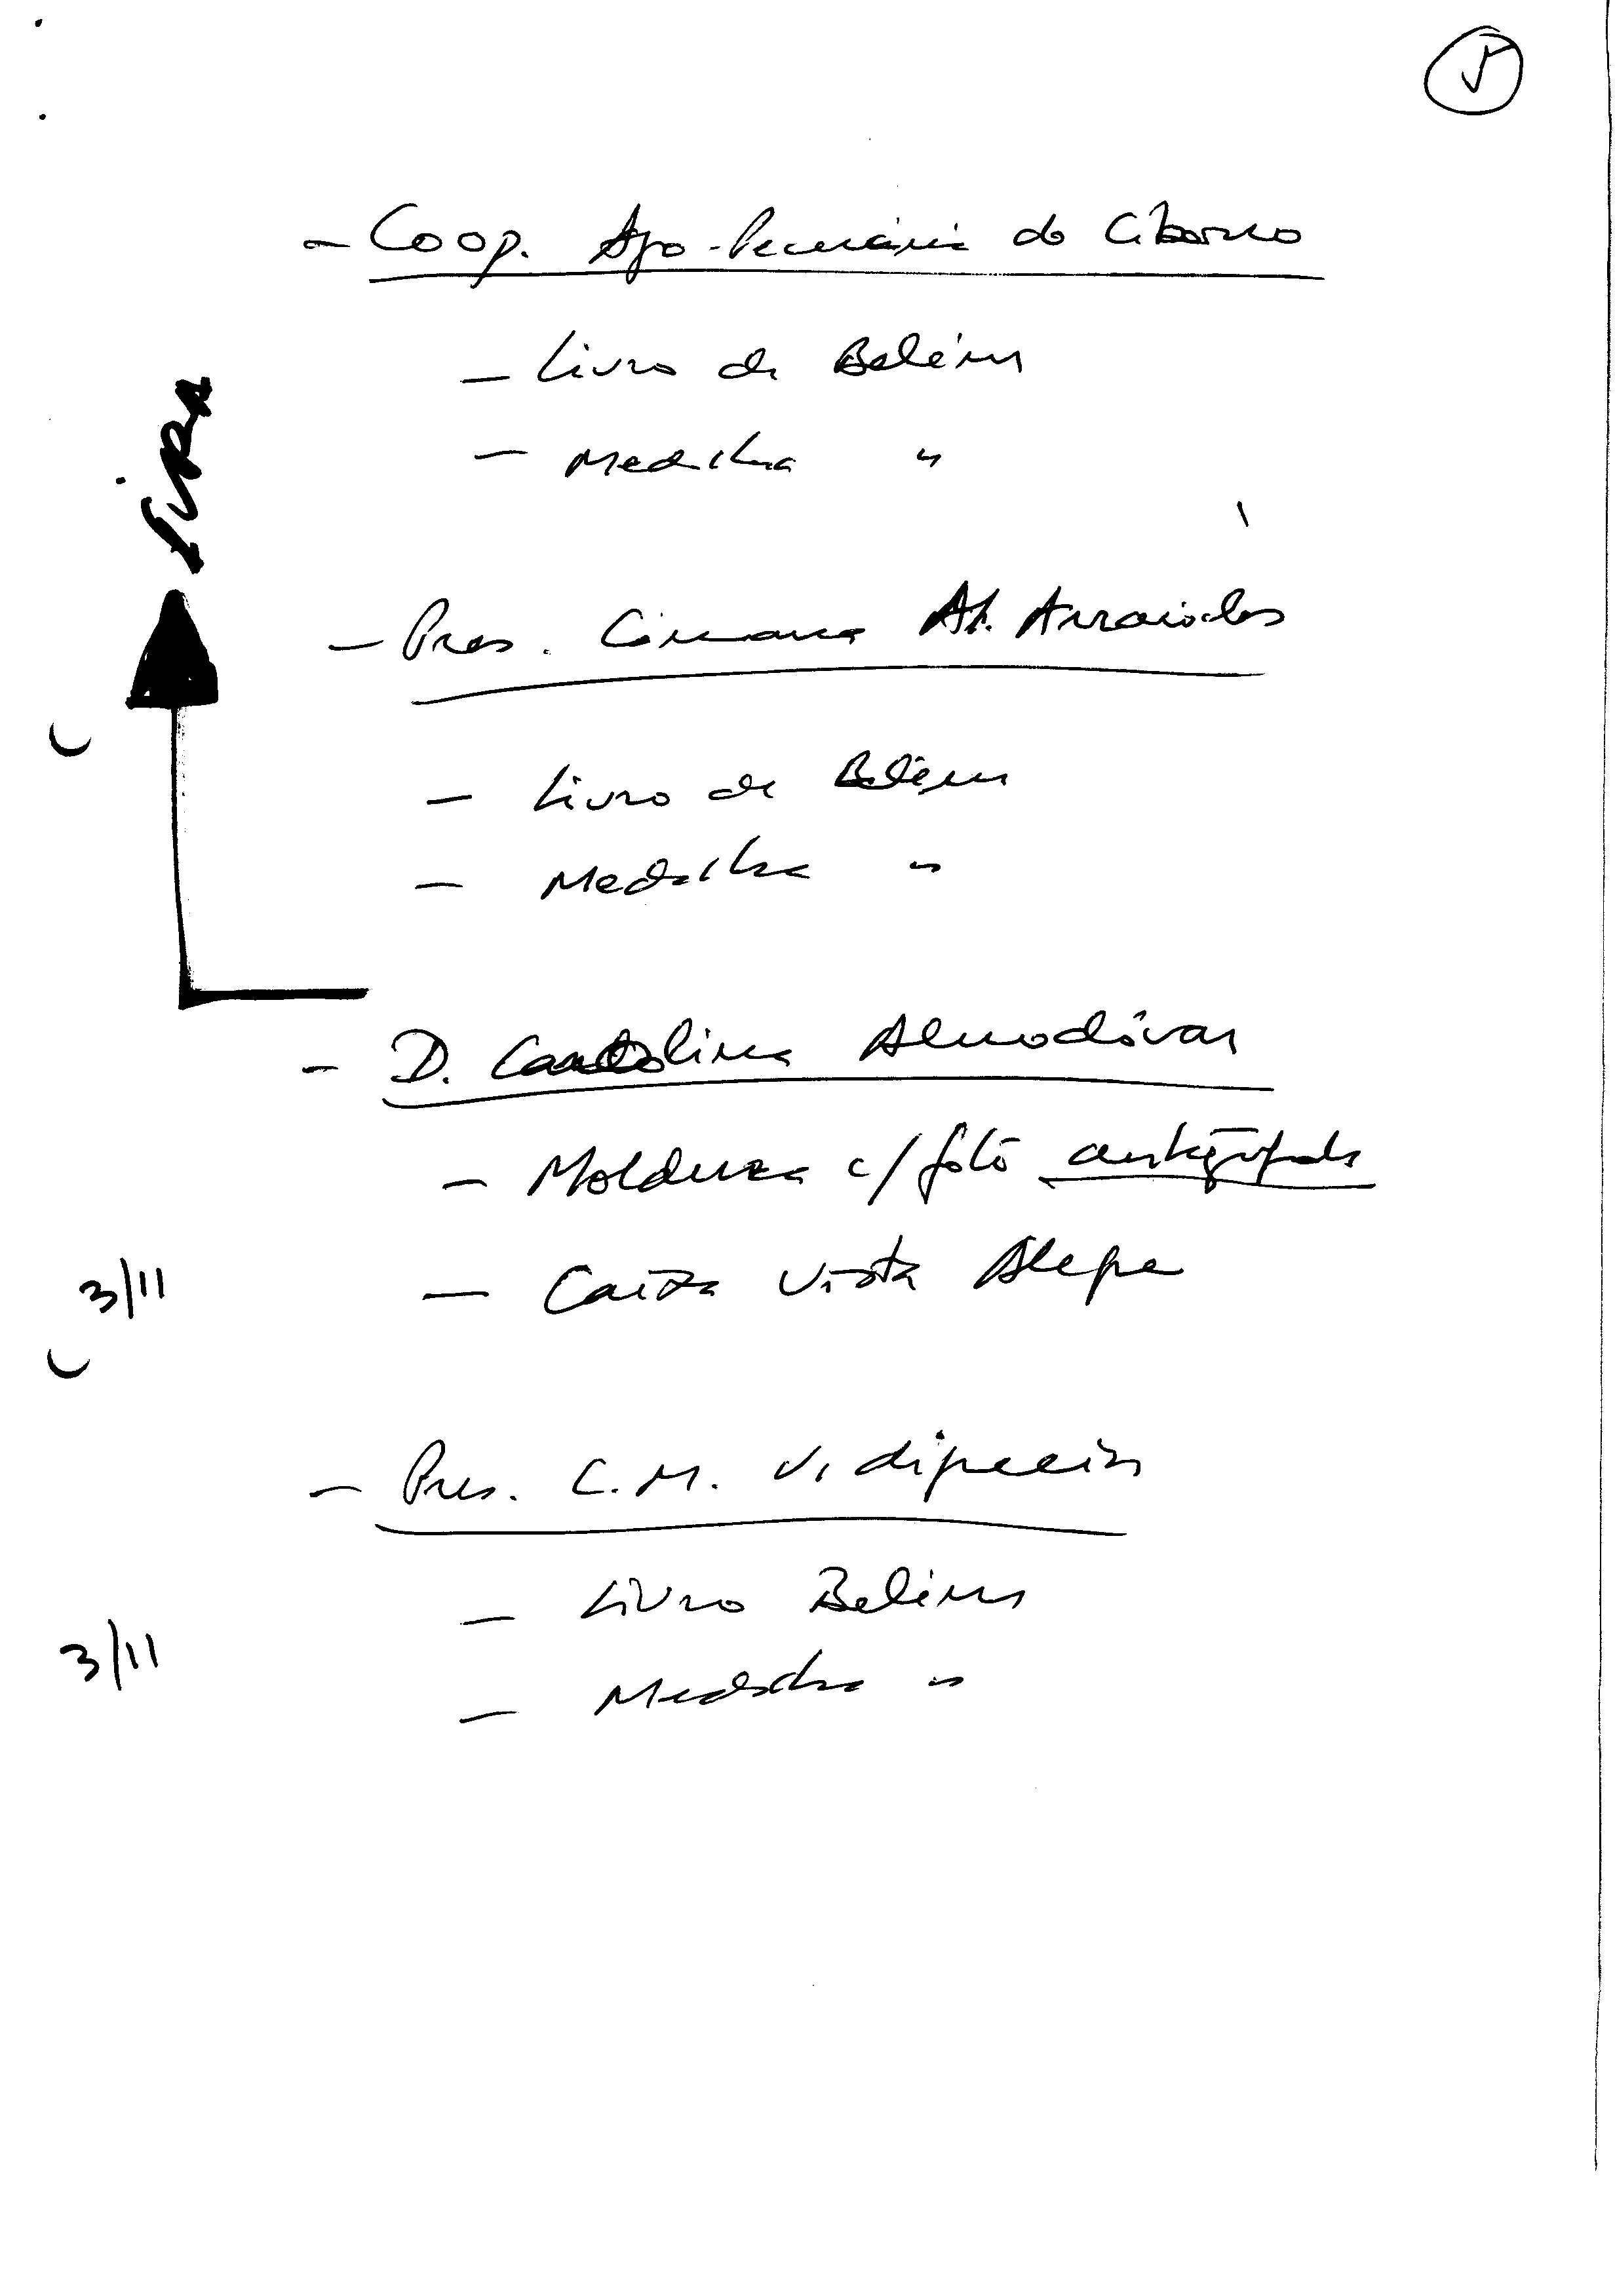 5
- Coop. Agro-Pecuária do Ciborro
- Livro de Belém
- Medalha "
- Pres. Câmara M. Arraiolos
- Livro de Belém
- Medalha "
- D. Carolina Almodôvar
- Moldura c/ foto autografada
3/11
- Caixa Vista Alegre
- Pres. C.M. Vidigueira
- Livro Belém
3/11
- Medalha "